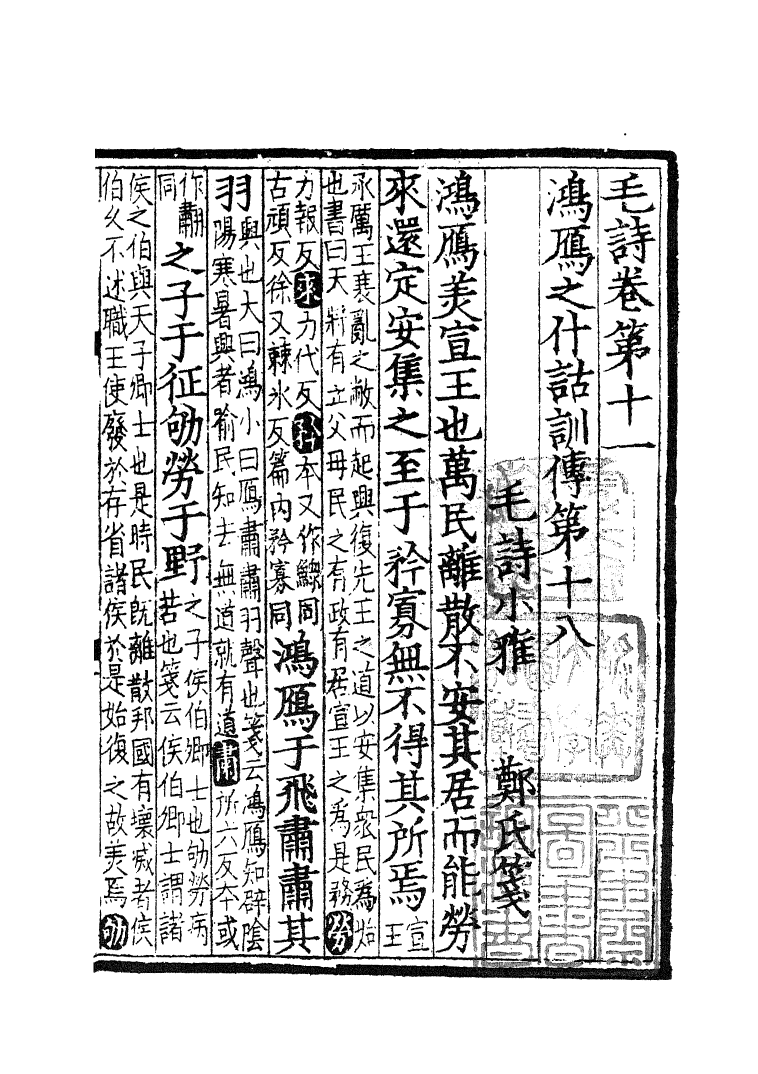 毛詩卷第十一
鴻鴈之什詁訓傳第十八
毛詩小雅　鄭氏箋
鴻鴈美宣王也萬民離散不安其居而能勞
來還定安集之至于矜寡無不得其所焉宣王
承厲王衰亂之敝而起興復先王之道以安集衆民爲始
也書曰天將有立父母民之有政有居宣王之爲是務勞
力報反來力代反矜本又作鰥同
古頑反徐又棘冰反篇内矜寡同鴻鴈于飛肅肅其
羽興也大曰鴻小曰鴈肅肅羽聲也箋云鴻鴈知辟陰
陽寒暑興者喻民知去無道就有道肅所六反本或
作翿同之子于征劬勞于野之子侯伯卿士也劬勞病
苦也箋云侯伯卿士謂諸
侯之伯與天子卿士也是時民旣離散邦國有壞滅者侯
伯久不述職王使廢於存省諸侯於是始復之故美焉劬